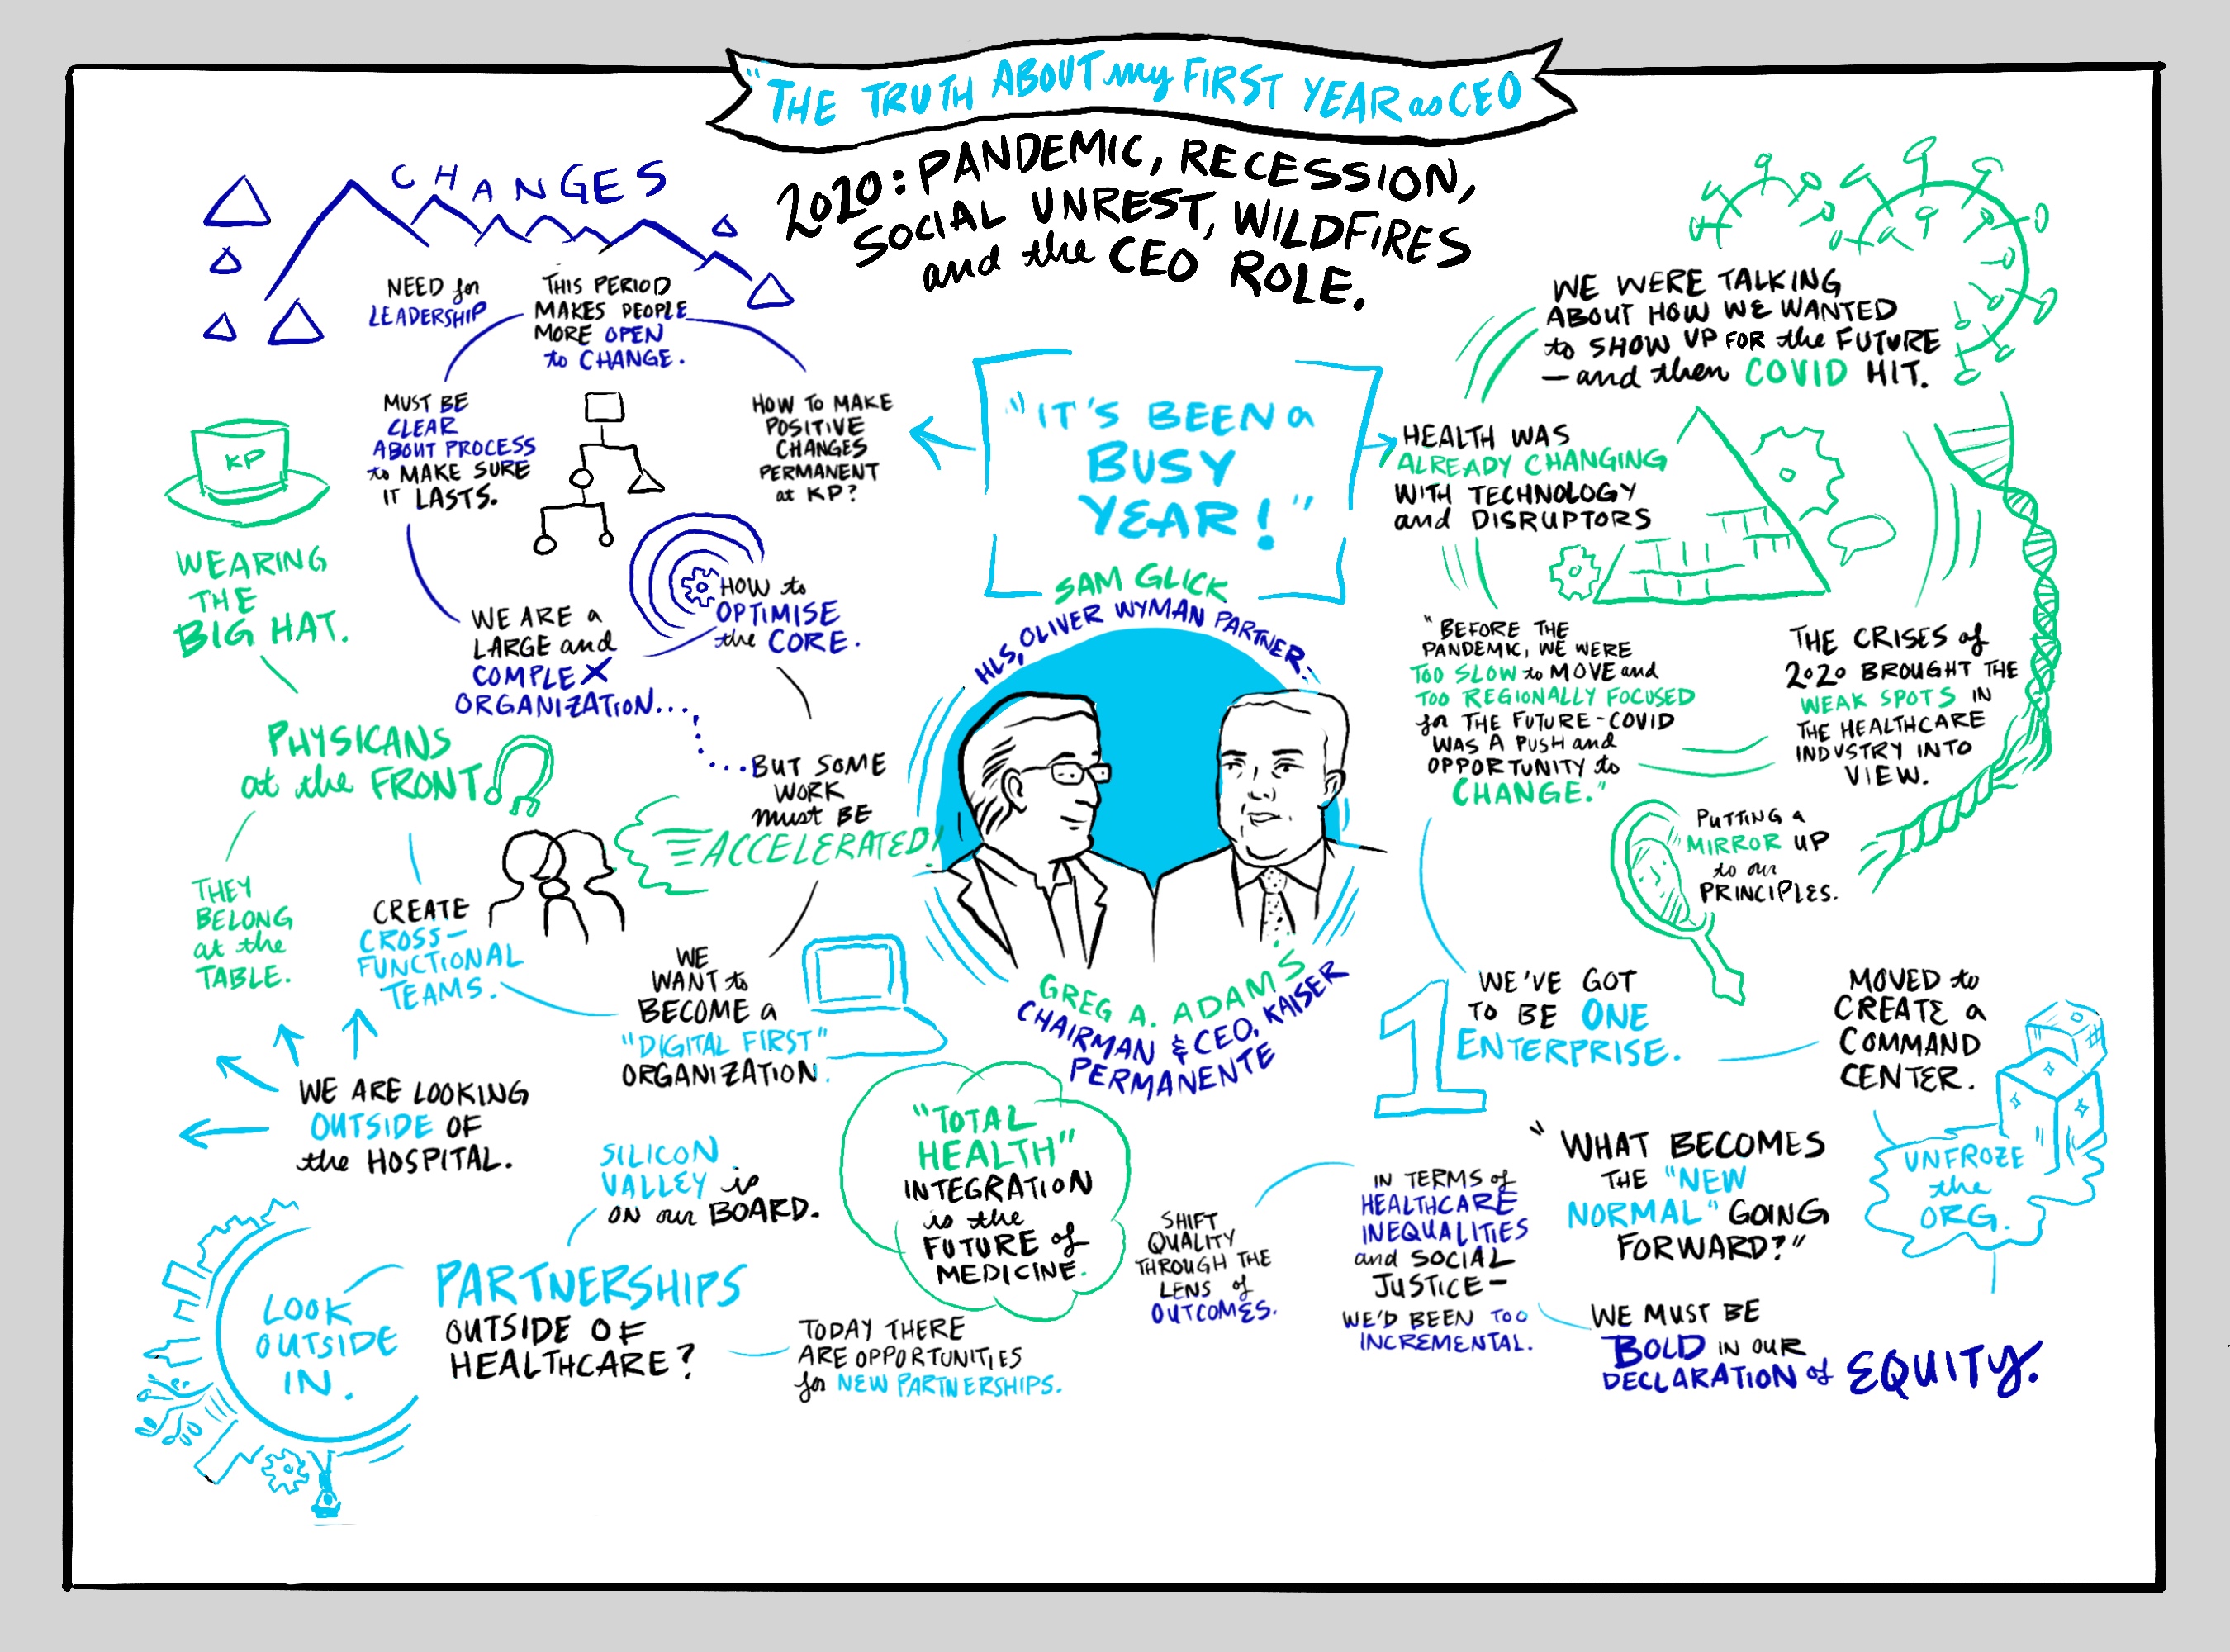 "THE TRUTH ABOUT my FIRST YEAR as CEO
2020: PANDEMIC, RECESSION,
SOCIAL UNREST, WILDFIRES
and the CEO ROLE.
CHANGES
NEED for
LEADERSHIP
THIS PERIOD
MAKES PEOPLE
MORE OPEN
to CHANGE.
MUST BE
CLEAR
ABOUT PROCESS
to MAKE SURE
IT LASTS.
HOW TO MAKE
POSITIVE
CHANGES
PERMANENT
at KP?
KP
WEARING
THE
BIG HAT.
WE ARE a
LARGE and
COMPLEX
ORGANIZATION...
HOW to
OPTIMISE
the CORE.
...BUT SOME
WORK
must BE
ACCELERATED!
PHYSICANS
at the FRONT
THEY
BELONG
at the
TABLE.
CREATE
CROSS-
FUNCTIONAL
TEAMS.
WE
WANT to
BECOME a
"DIGITAL FIRST"
ORGANIZATION.
WE ARE LOOKING
OUTSIDE OF
the HOSPITAL.
SILICON
VALLEY is
ON our BOARD.
LOOK
OUTSIDE
IN.
PARTNERSHIPS
OUTSIDE OF
HEALTHCARE?
TODAY THERE
ARE OPPORTUNITIES
for NEW PARTNERSHIPS.
"IT'S BEEN a
BUSY
YEAR!"
SAM GLICK
HLS, OLIVER WYMAN PARTNER
GREG A. ADAMS
CHAIRMAN & CEO, KAISER
PERMANENTE
"TOTAL
HEALTH"
INTEGRATION
is the
FUTURE of
MEDICINE.
WE WERE TALKING
ABOUT HOW WE WANTED
to SHOW UP FOR the FUTURE
- and then COVID HIT.
HEALTH WAS
ALREADY CHANGING
WITH TECHNOLOGY
and DISRUPTORS
"BEFORE THE
PANDEMIC, WE WERE
TOO SLOW to MOVE and
TOO REGIONALLY FOCUSED
for THE FUTURE - COVID
WAS A PUSH and
OPPORTUNITY to
CHANGE."
THE CRISES of
2020 BROUGHT THE
WEAK SPOTS IN
THE HEALTHCARE
INDUSTRY INTO
VIEW.
PUTTING a
MIRROR UP
to our
PRINCIPLES.
1
WE'VE GOT
TO BE ONE
ENTERPRISE.
MOVED to
CREATE a
COMMAND
CENTER.
UNFROZE
the
ORG.
"WHAT BECOMES
THE "NEW
NORMAL" GOING
FORWARD?"
SHIFT
QUALITY
THROUGH THE
LENS of
OUTCOMES.
IN TERMS of
HEALTHCARE
INEQUALITIES
and SOCIAL
JUSTICE -
WE'D BEEN TOO
INCREMENTAL.
WE MUST BE
BOLD IN OUR
DECLARATION of EQUITY.